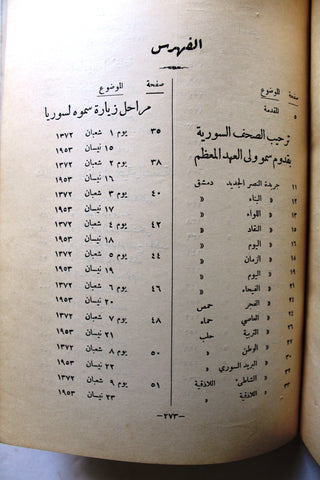 الفهرس
صفحة الموضوع
٥ المقدمة
ترحيب الصحف السورية
بقدوم سمو ولي العهد المعظم
١١ جريدة النصر الجديد دمشق
١٢ » البناء »
١٣ » اللواء »
١٤ » النقاد »
١٦ » اليوم »
١٨ » الزمان »
١٩ » اليوم »
٢١ » الفيحاء »
» الفجر حمص
» العاصي حماه
» التربية حلب
» الوطن »
٣٠ » البريد السوري »
» الشاطىء اللاذقية
٣٣ » اللاذقية »
صفحة الموضوع
مراحل زيارة سموه لسوريا
٣٥ يوم ١ شعبان ١٣٧٢
١٥ نيسان ١٩٥٣
٣٨ يوم ٢ شعبان ١٣٧٢
١٦ نيسان ١٩٥٣
٤٠ يوم ٣ شعبان ١٣٧٢
١٧ نيسان ١٩٥٣
٤٢ يوم ٤ شعبان ١٣٧٢
١٨ نيسان ١٩٥٣
٤٤ يوم ٥ شعبان ١٣٧٢
١٩ نيسان ١٩٥٣
٤٦ يوم ٦ شعبان ١٣٧٢
٢٠ نيسان ١٩٥٣
٤٨ يوم ٧ شعبان ١٣٧٢
٢١ نيسان ١٩٥٣
٥٠ يوم ٨ شعبان ١٣٧٢
٢٢ نيسان ١٩٥٣
٥١ يوم ٩ شعبان ١٣٧٢
٢٣ نيسان ١٩٥٣
—٢٧٣—